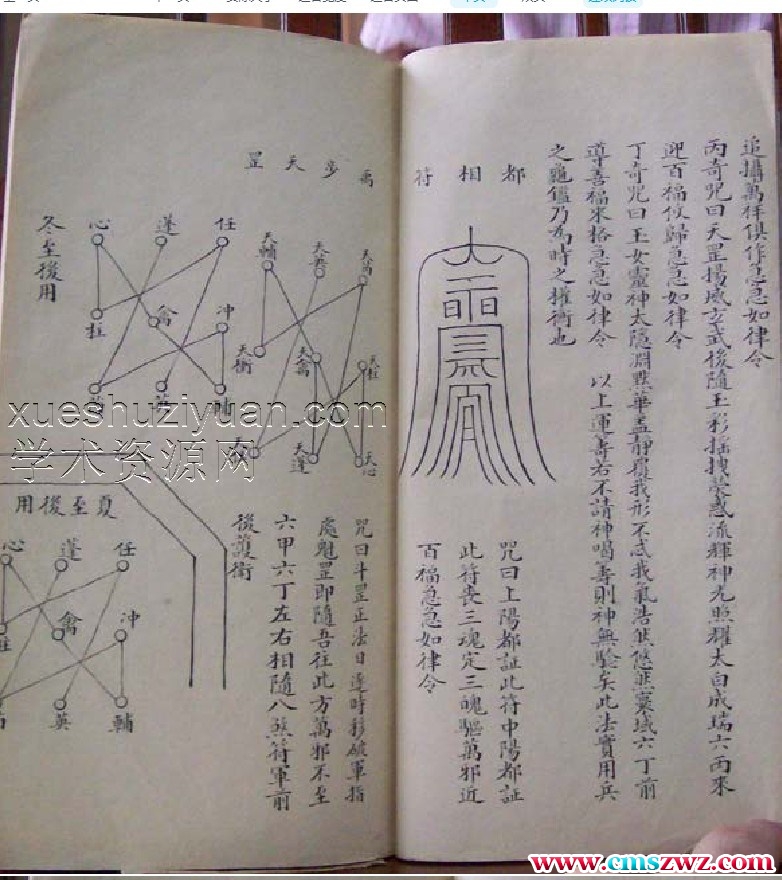 追攝萬祥俱作急急如律令
丙奇咒曰天罡揚威玄武後隨玉彩搖拽熒惑流輝神光照耀太白成瑞六丙來
迎百福仗歸急急如律令
丁奇咒曰玉女靈神太隂淵默華盖靜真我形不忒我氣浩然悠然寰域六丁前
導善福來格急急如律令 以上運壽若不請神喝壽則神無驗矣此法實用兵
之龜鑑乃為時之權衡也
都相符
咒曰上陽都証此符中陽都証
此符丧三魂定三魄驅萬邪近
百福急急如律令
禹步天罡
天輔
天禽
天衝
天柱
天蓬
天心
咒曰斗罡正法日逢時移破軍指
處魁罡即隨吾往此方萬邪不至
六甲六丁左右相隨八煞符軍前
後護衛
任
蓬
心
冲
禽
柱
英
輔
冬至後用
夏至後用
任
蓬
心
冲
禽
柱
輔
英
xueshuziyuan.com
学术资源网
www.cmszwz.com